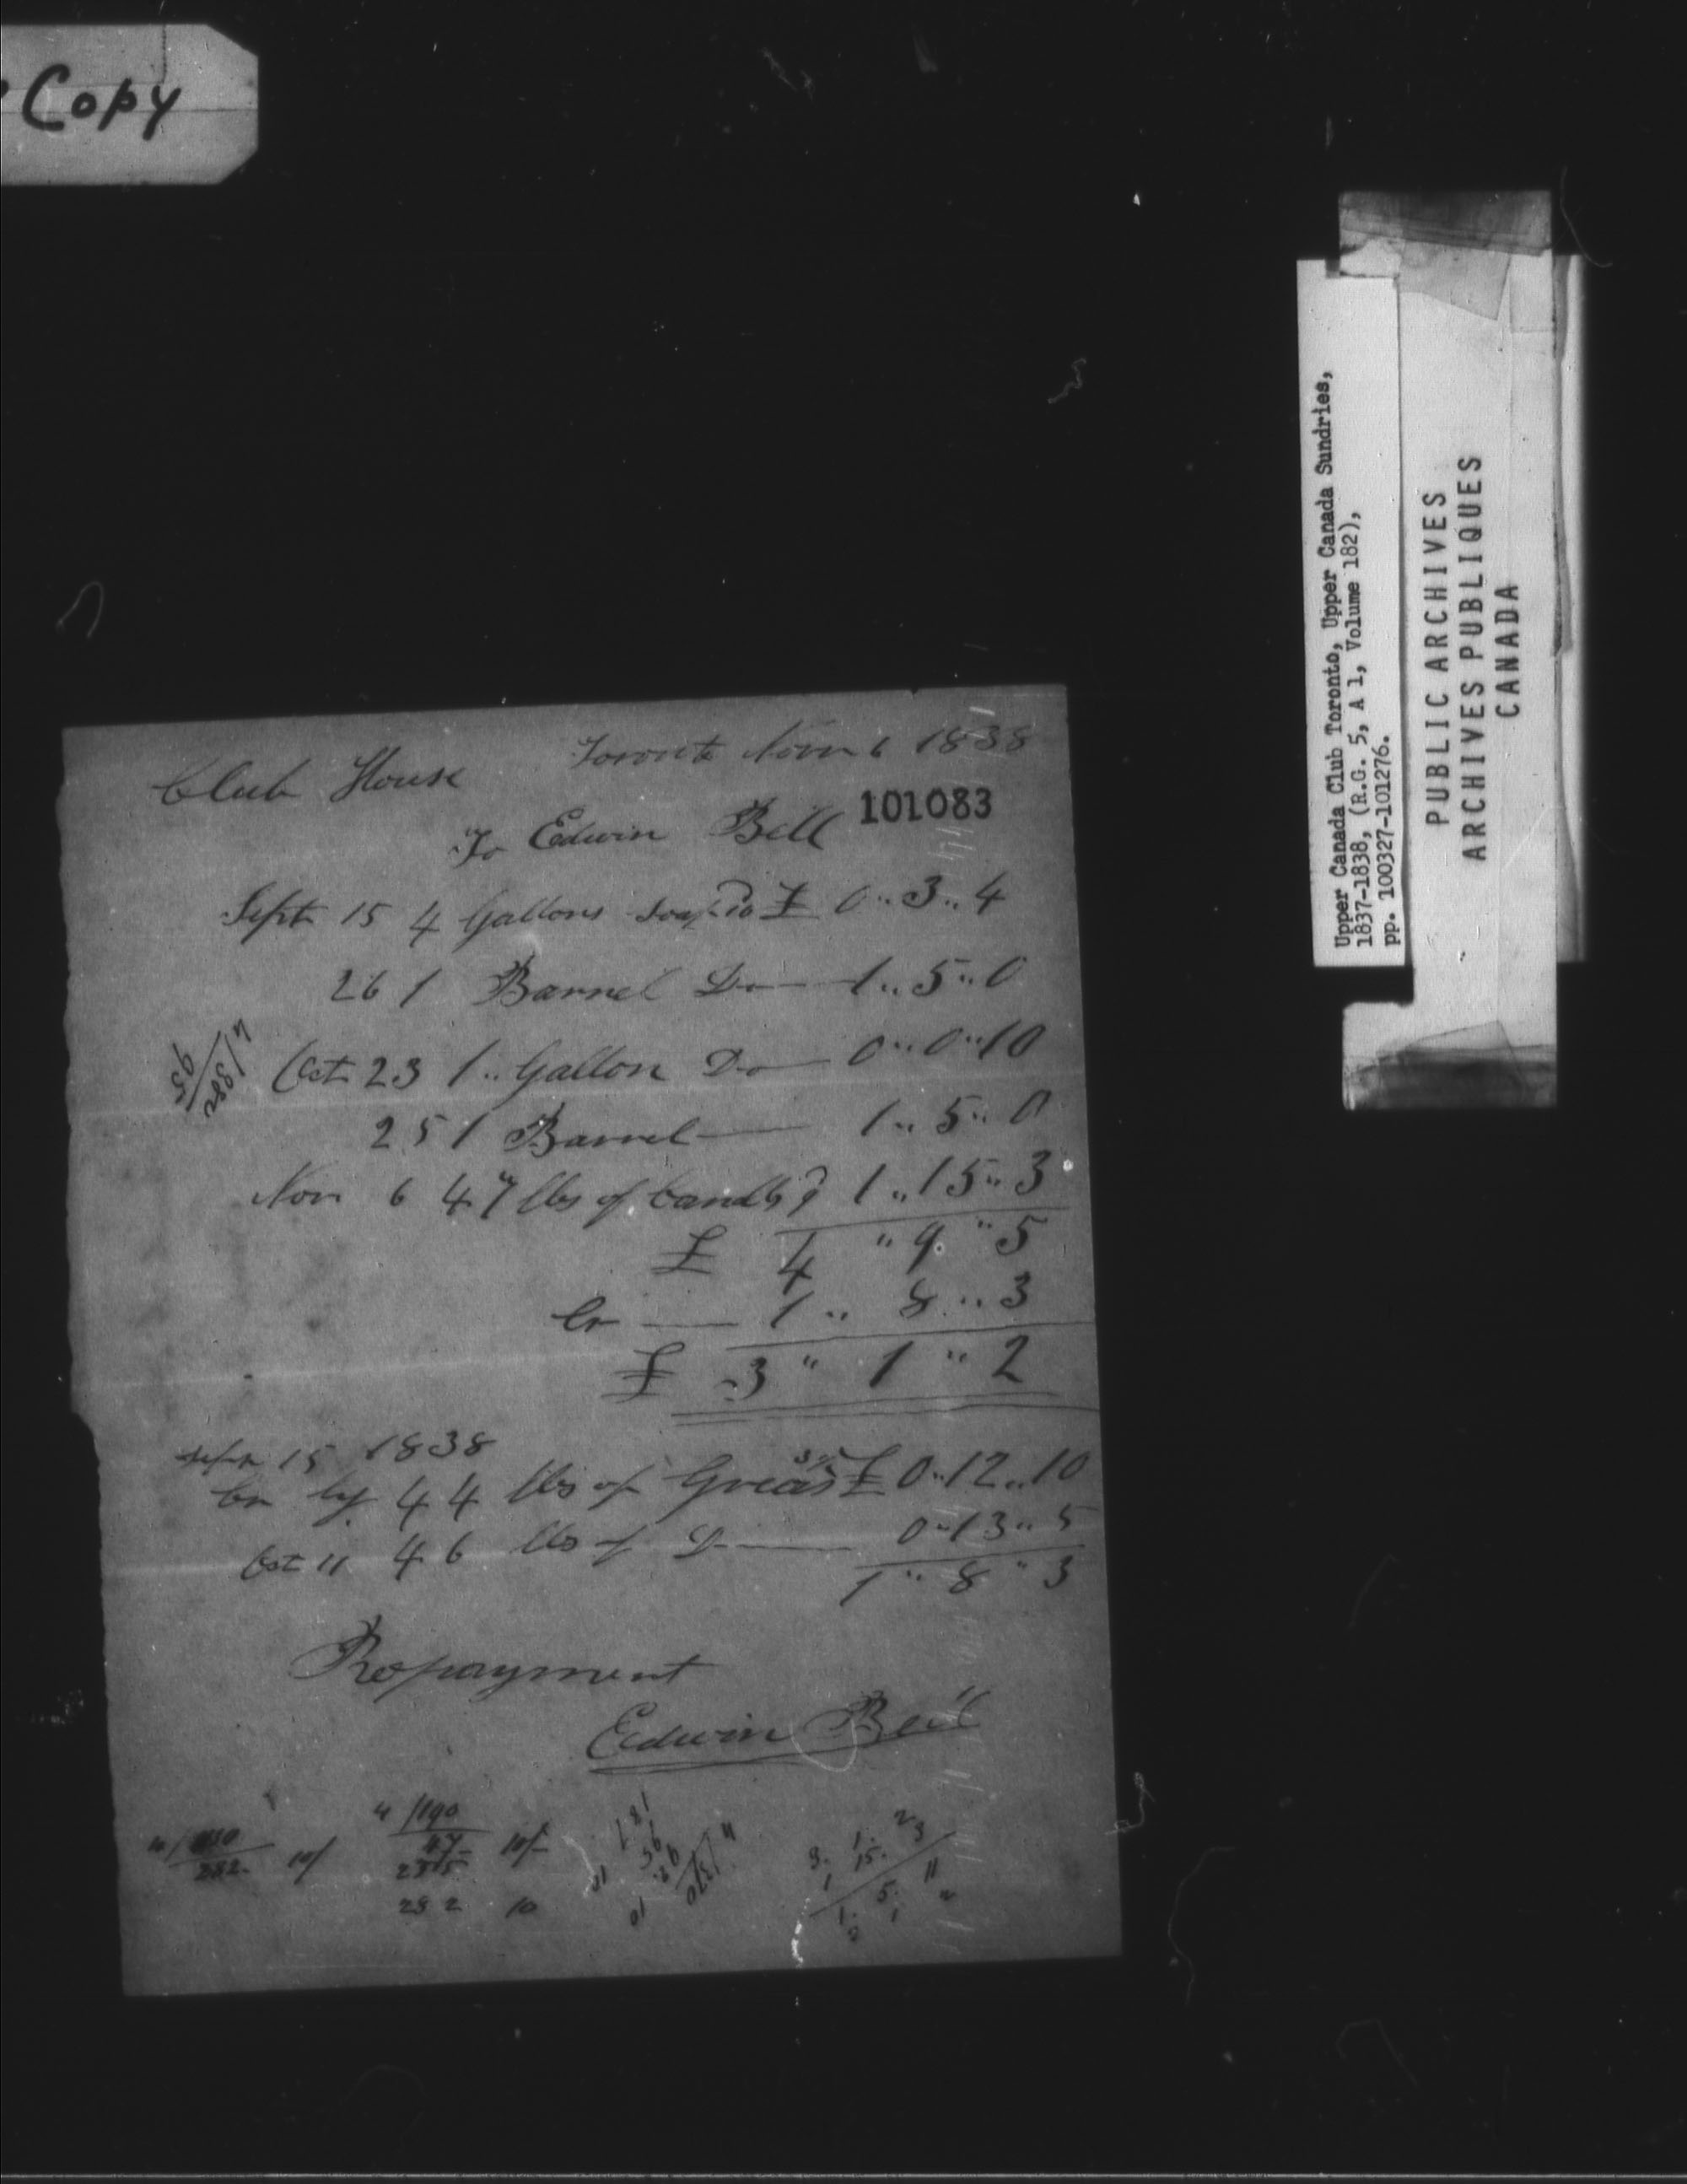 Copy
Toronto Novr 6 1838
Club House
101083
To Edwin Bell
Sept 15 4 Gallons soap 10 £ 0 .. 3 .. 4
26 1 Barrel Do — 1 .. 5 .. 0
Oct 23 1 .. Gallon Do — 0 .. 0 .. 10
25 1 Barrel — 1 .. 5 .. 0
Nov 6 47 lbs of Candls 9 1 .. 15 .. 3
£ 4 " 9 " 5
Cr — 1 .. 8 .. 3
£ 3 " 1 " 2
Sept 15 1838
Cr by 44 lbs of Greas 3½ £ 0 .. 12 .. 10
Oct 11 46 lbs of D — 0 .. 13 .. 5
1 " 8 " 3
Repayment
Edwin Bell
4/382
95
4/190
47
282 10/
235
282 10
Upper Canada Club Toronto, Upper Canada Sundries,
1837-1838, (R.G. 5, A 1, Volume 182),
pp. 100327-101276.
PUBLIC ARCHIVES
ARCHIVES PUBLIQUES
CANADA